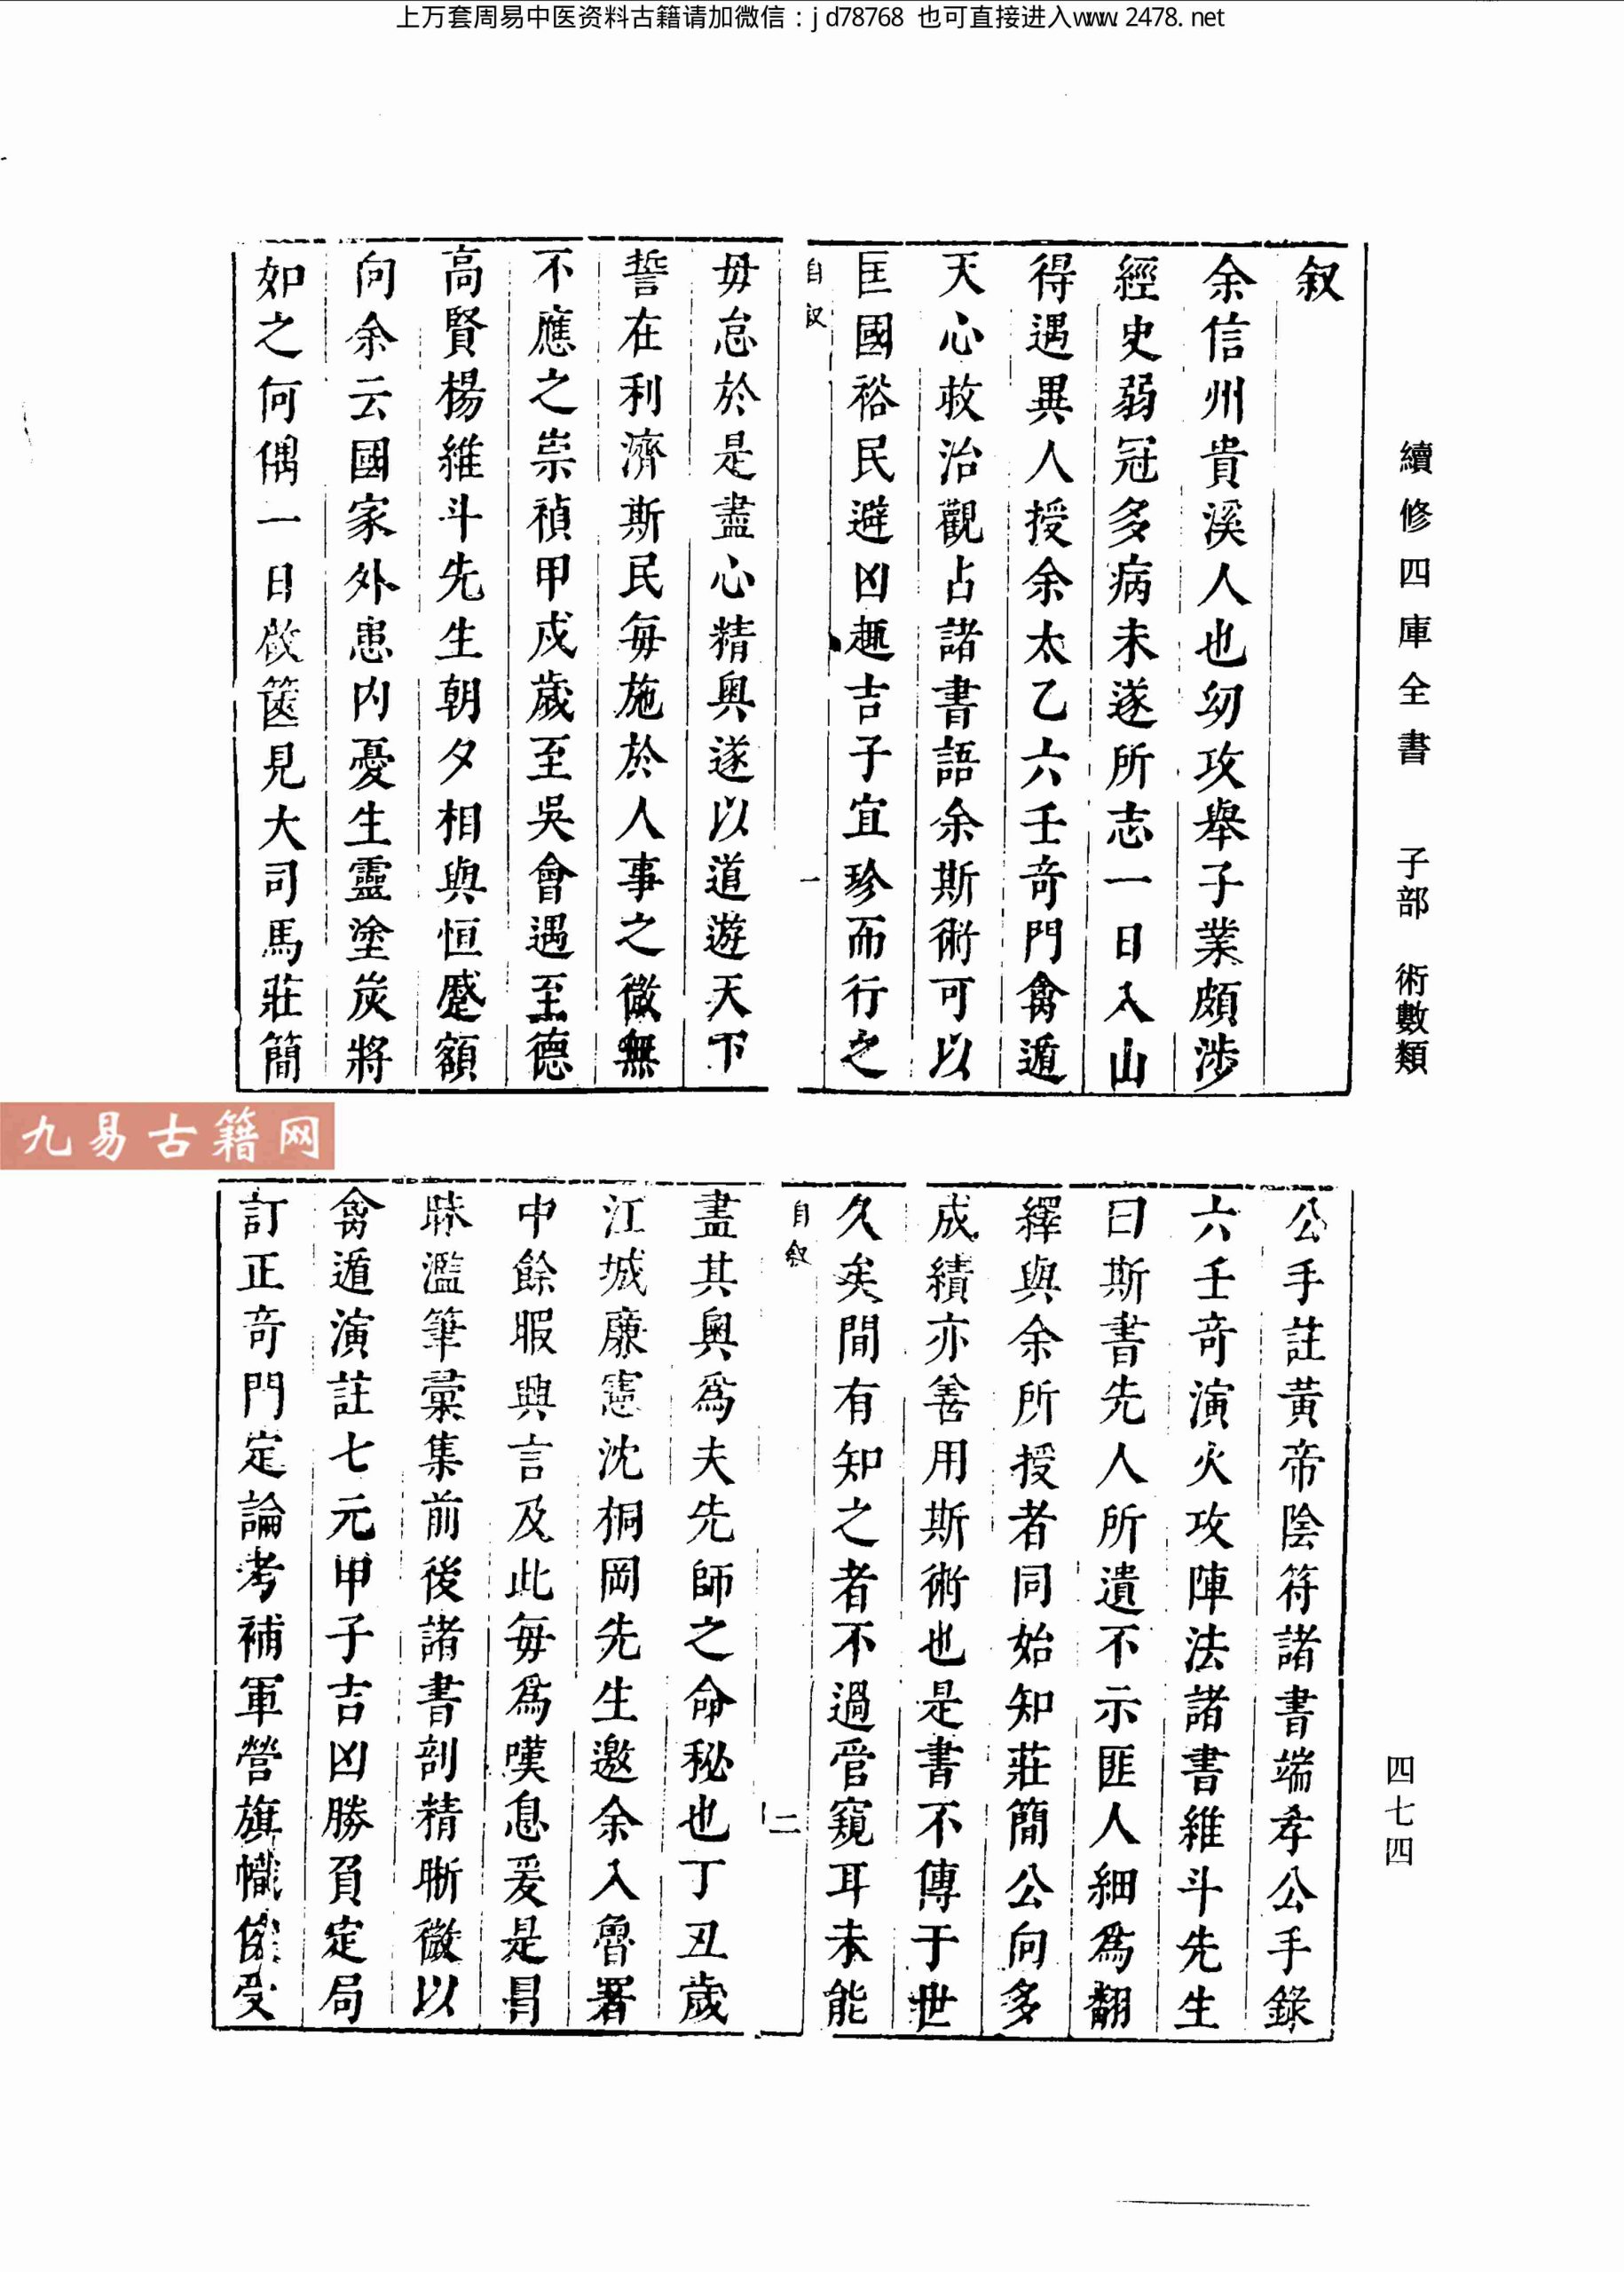 上万套周易中医资料古籍请加微信：jd78768 也可直接进入www.2478.net
續修四庫全書 子部 術數類
叙
余信州貴溪人也幼攻舉子業頗涉
經史弱冠多病未遂所志一日入山
得遇異人授余太乙六壬奇門禽遁
天心救治觀占諸書語余斯術可以
匡國裕民避凶趣吉子宜珍而行之
自叙
一
毋怠於是盡心精奥遂以道遊天下
誓在利濟斯民每施於人事之微無
不應之崇禎甲戌歲至吳會遇至德
高賢楊維斗先生朝夕相與恒蹙額
向余云國家外患内憂生靈塗炭將
如之何偶一日啟篋見大司馬莊簡
九易古籍网
四七四
公手註黃帝陰符諸書端孝公手錄
六壬奇演火攻陣法諸書維斗先生
曰斯書先人所遺不示匪人細為翻
繹與余所授者同始知莊簡公向多
成績亦善用斯術也是書不傳于世
久矣間有知之者不過管窺耳未能
自叙
二
盡其奧爲夫先師之命秘也丁丑歲
江城廉憲沈桐岡先生邀余入魯署
中餘暇興言及此每爲嘆息爰是昌
昧濫筆彙集前後諸書剖精晰微以
禽遁演註七元甲子吉凶勝負定局
訂正奇門定論考補軍營旗幟受